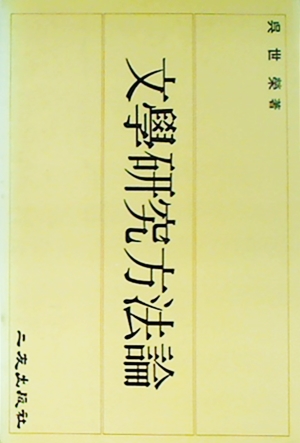 吳世榮著
文學研究方法論
二友出版社